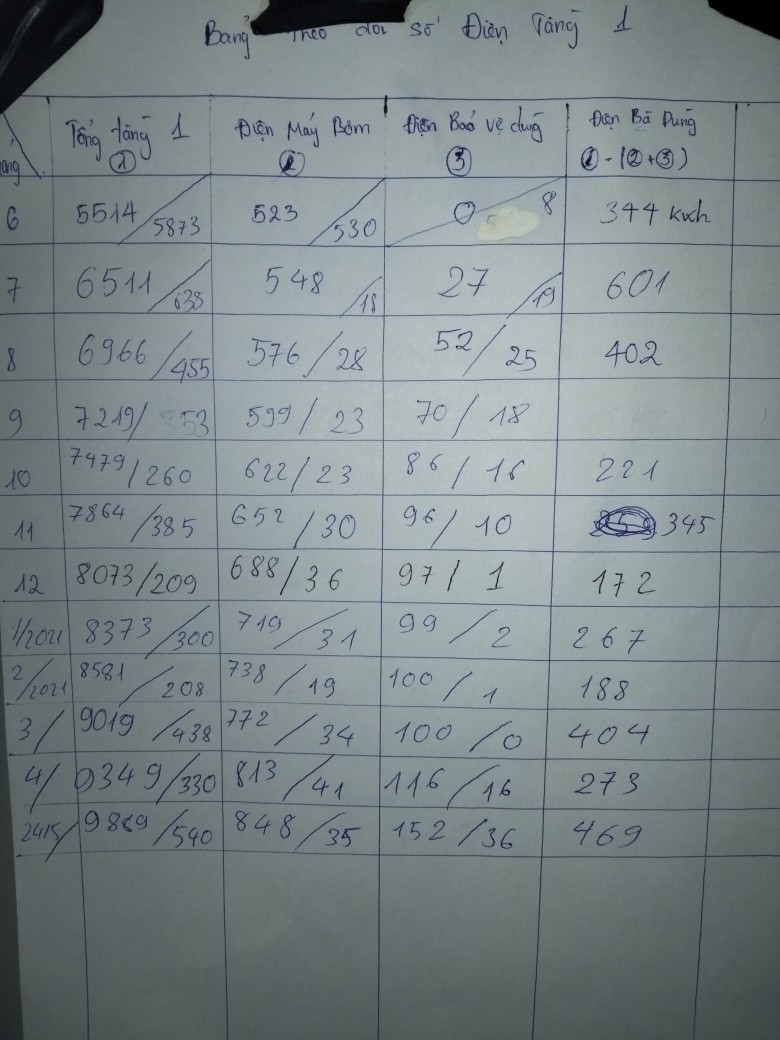 Bảng theo dõi số Điện Tầng 1
Tổng tầng 1 Điện Máy Bơm Điện Bảo vệ dùng Điện Bà Dung
① ② ③ ① - (② + ③)
6 5514/5873 523/530 0/8 344 kwh
7 6511/638 548/18 27/19 601
8 6966/455 576/28 52/25 402
9 7219/253 599/23 70/18
10 7479/260 622/23 86/16 221
11 7864/385 652/30 96/10 345
12 8073/209 688/36 97/1 172
1/2021 8373/300 719/31 99/2 267
2/2021 8581/208 738/19 100/1 188
3/ 9019/438 772/34 100/0 404
4/ 9349/330 813/41 116/16 273
24/5/ 9869/540 848/35 152/36 469